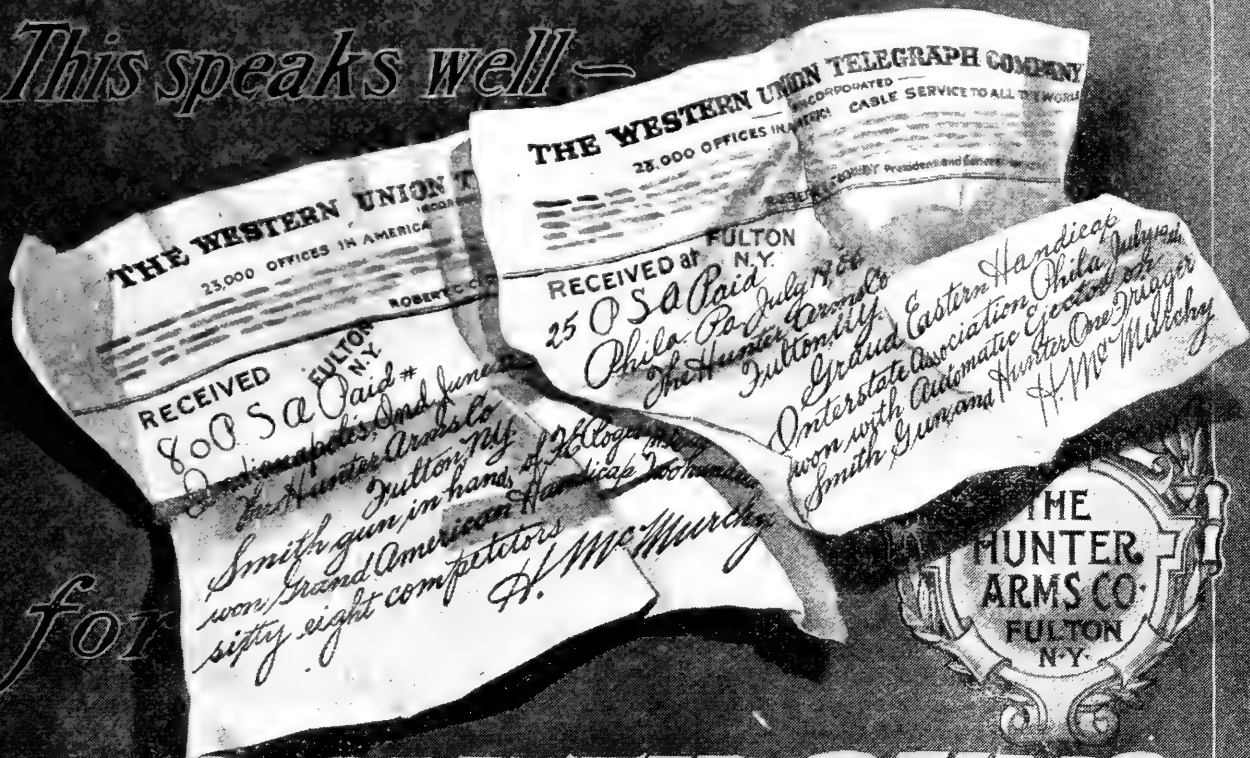 This speaks well —
THE WESTERN UNION
23,000 OFFICES IN AMERICA
ROBERT C.
RECEIVED
FULTON
N.Y.
80 P S A Paid #
Indianapolis, Ind June
The Hunter Arms Co
Fulton NY
Smith gun in hands of
won Grand American Handicap Two hundred
sixty eight competitors
H. McMurchy
THE WESTERN UNION TELEGRAPH COMPANY
INCORPORATED
23,000 OFFICES IN AMERICA CABLE SERVICE TO ALL THE WORLD
President and General
RECEIVED at
FULTON
N.Y.
25 P S A Paid
Phila. Pa. July 19,
The Hunter Arms Co
Fulton, N.Y.
Grand Eastern Handicap
Interstate Association Phila July
won with Automatic Ejector
Smith Gun, and Hunter One Trigger
H. McMurchy
for
THE
HUNTER
ARMS CO.
FULTON
N.Y.